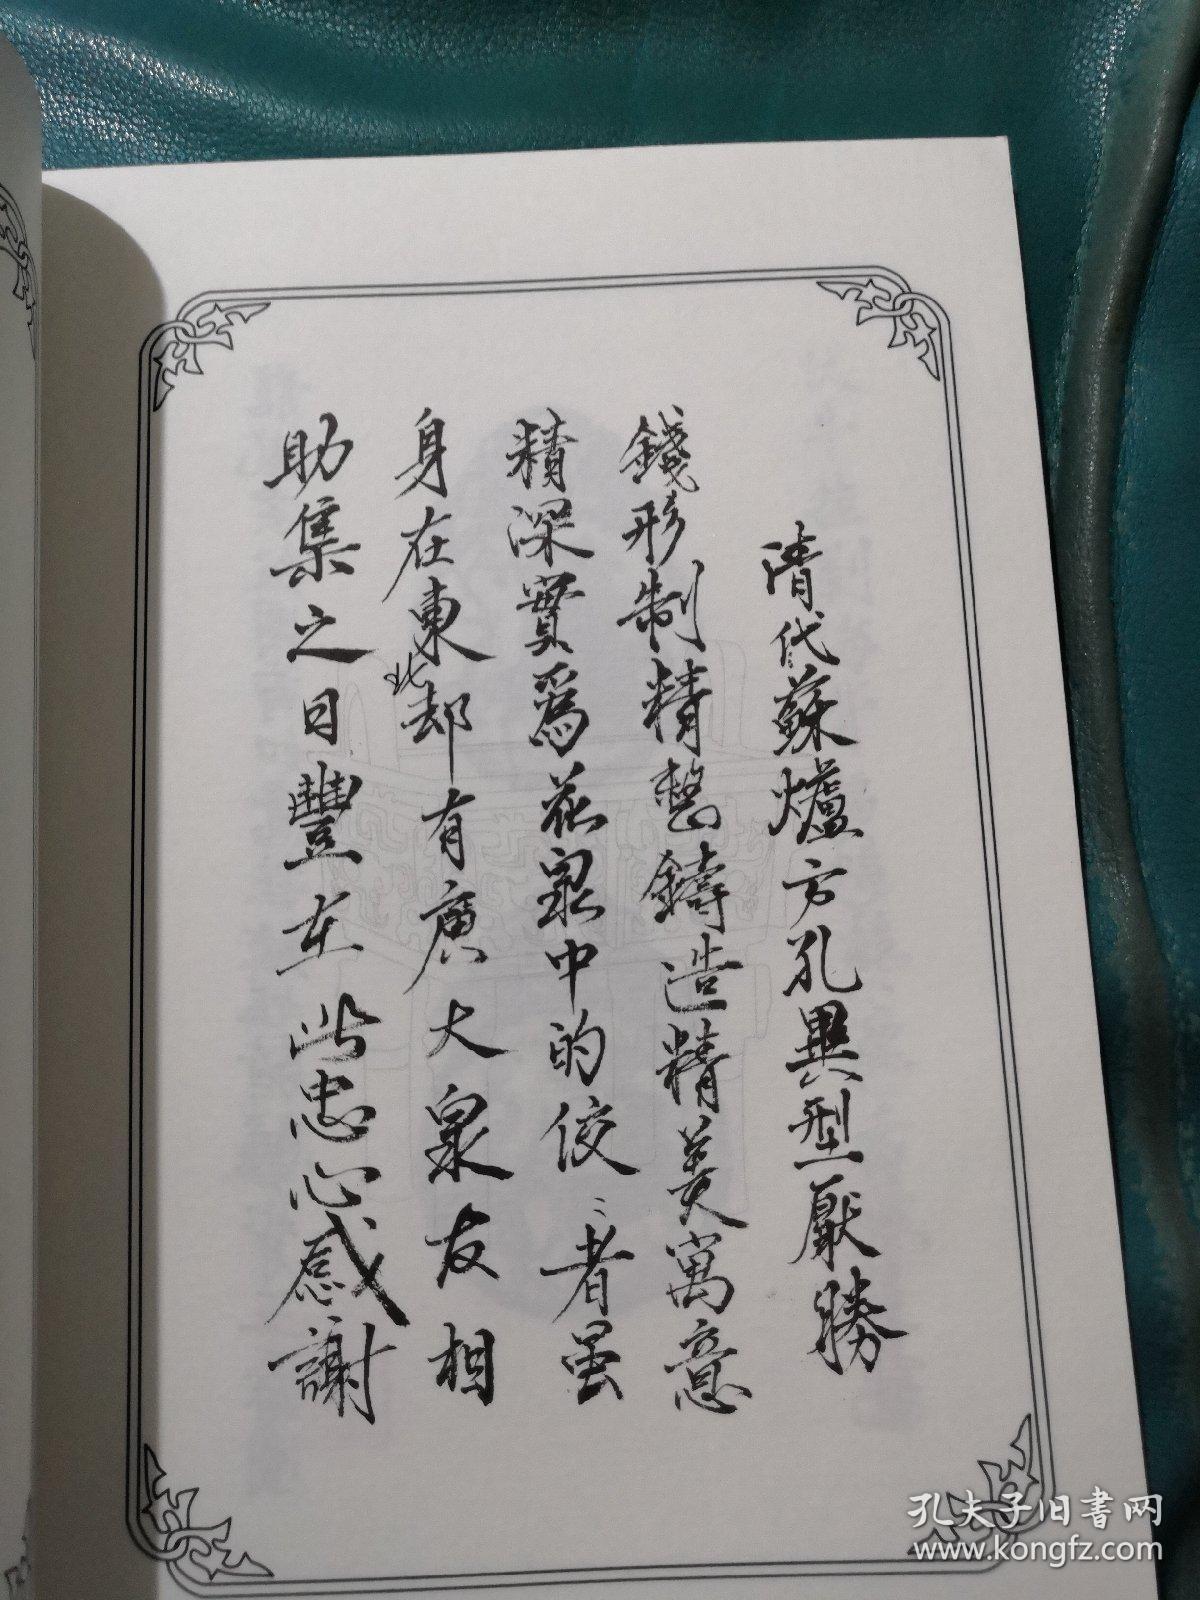 清代蘇爐方孔異型厭勝
錢形制精整鑄造精美寓意
精深實為花泉中的佼々者虽
身在東北却有廣大泉友相
助集之日豐在此忠心感謝
孔夫子旧书网
www.kongfz.com